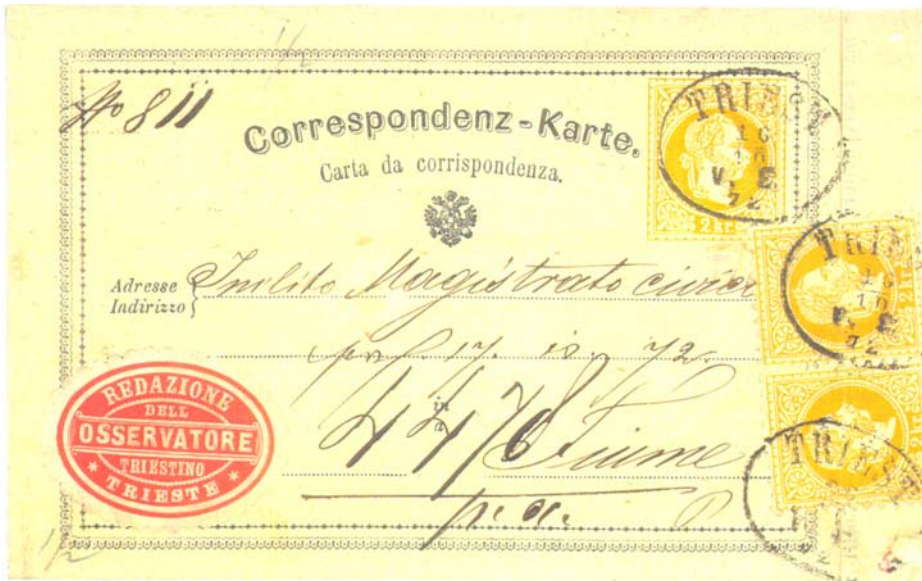 No 811
Correspondenz-Karte.
Carta da corrispondenza.
TRIEST
2 Kr.
Adresse
Indirizzo
Inclito Magistrato civico
17. 10. 72.
in
a
4476
Fiume
REDAZIONE
DELL
OSSERVATORE
TRIESTINO
TRIESTE
TRIEST
TRIEST